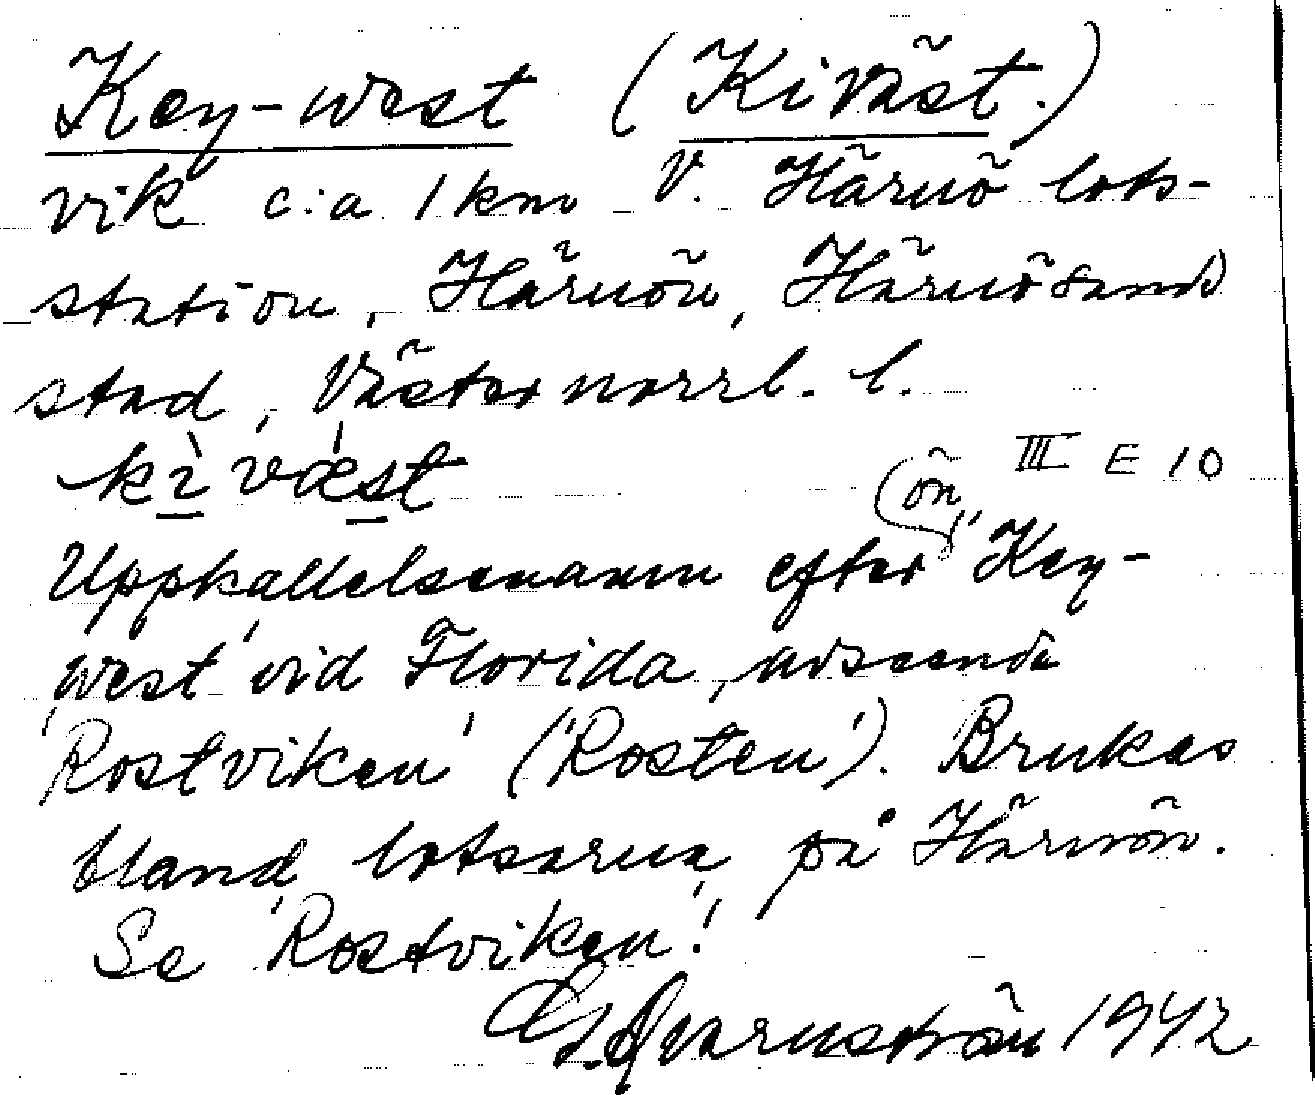 Key-west (Kiväst.)
vik c:a 1 km V. Härnö lots-
station, Härnön, Härnösands
stad, Västernorrl. l.
kì væ̍st
III E 10
ön
Uppkallelsenamn efter 'Key-
west' vid Florida, avseende
'Rostviken' ('Rosten'). Brukas
bland lotsarna på Härnön.
Se 'Rostviken'!
Qvarnström 1942